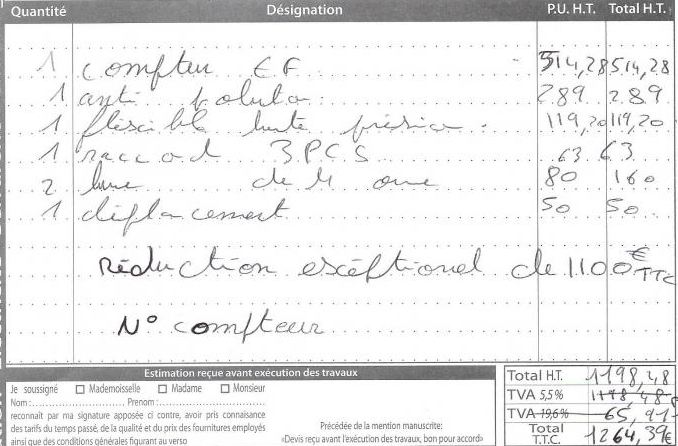 Quantité Désignation P.U. H.T. Total H.T.
1 compteur EF 514,28 514,28
1 anti polution 289 289
1 flescible haute présion 119,20 119,20
1 raccod 3PCS 63 63
2 heure de M oeuvre 80 160
1 déplancement 50 50
Réduction escéptionel de 1100€ TTC
N° compteur
Estimation reçue avant exécution des travaux
Je soussigné Mademoiselle Madame Monsieur
Nom : Prénom :
reconnait par ma signature apposée ci contre, avoir pris connaissance
des tarifs du temps passé, de la qualité et du prix des fournitures employés
ainsi que des conditions générales figurant au verso
Précédée de la mention manuscrite:
«Devis reçu avant l'exécution des travaux, bon pour accord»
Total H.T. 1198,48
TVA 5,5% 1198,48
TVA 19,6% 65,91
Total T.T.C. 1264,39€